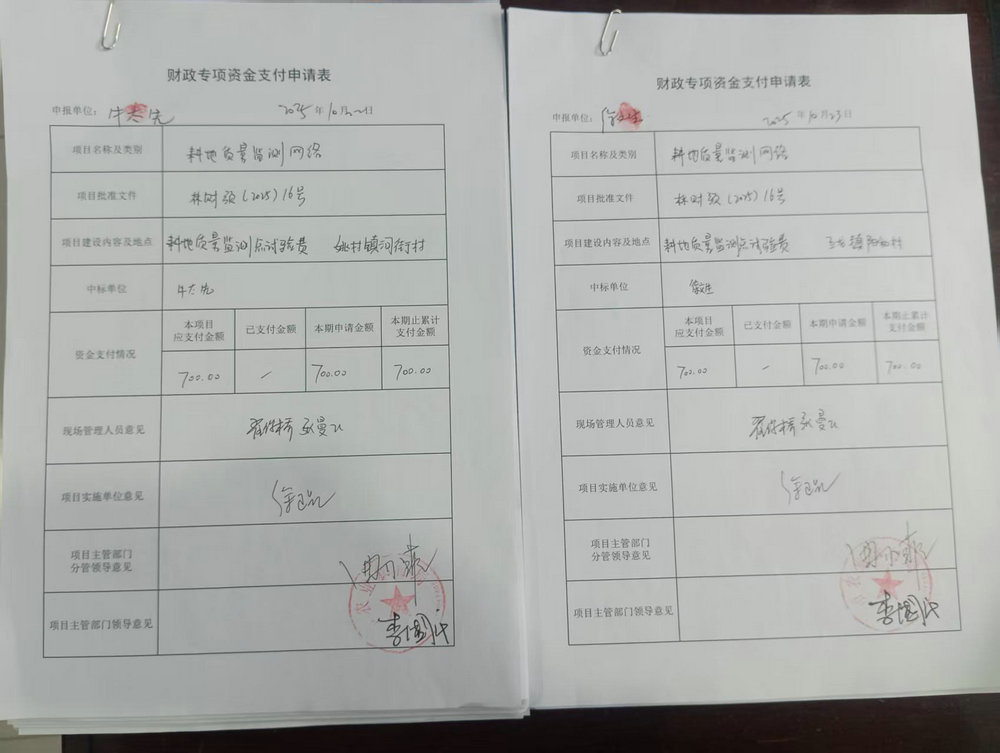 财政专项资金支付申请表
申报单位：牛志先 2025年10月22日
项目名称及类别 耕地质量监测网络
项目批准文件 林财预(2025)16号
项目建设内容及地点 耕地质量监测点试验费 姚村镇河街村
中标单位 牛志先
资金支付情况
本项目应支付金额 已支付金额 本期申请金额 本期止累计支付金额
700.00 / 700.00 700.00
现场管理人员意见
项目实施单位意见
项目主管部门分管领导意见
项目主管部门领导意见
财政专项资金支付申请表
申报单位： 2025年10月23日
项目名称及类别 耕地质量监测网络
项目批准文件 林财预(2025)16号
项目建设内容及地点 耕地质量监测点试验费
中标单位
资金支付情况
本项目应支付金额 已支付金额 本期申请金额 本期止累计支付金额
700.00 / 700.00 700.00
现场管理人员意见
项目实施单位意见
项目主管部门分管领导意见
项目主管部门领导意见